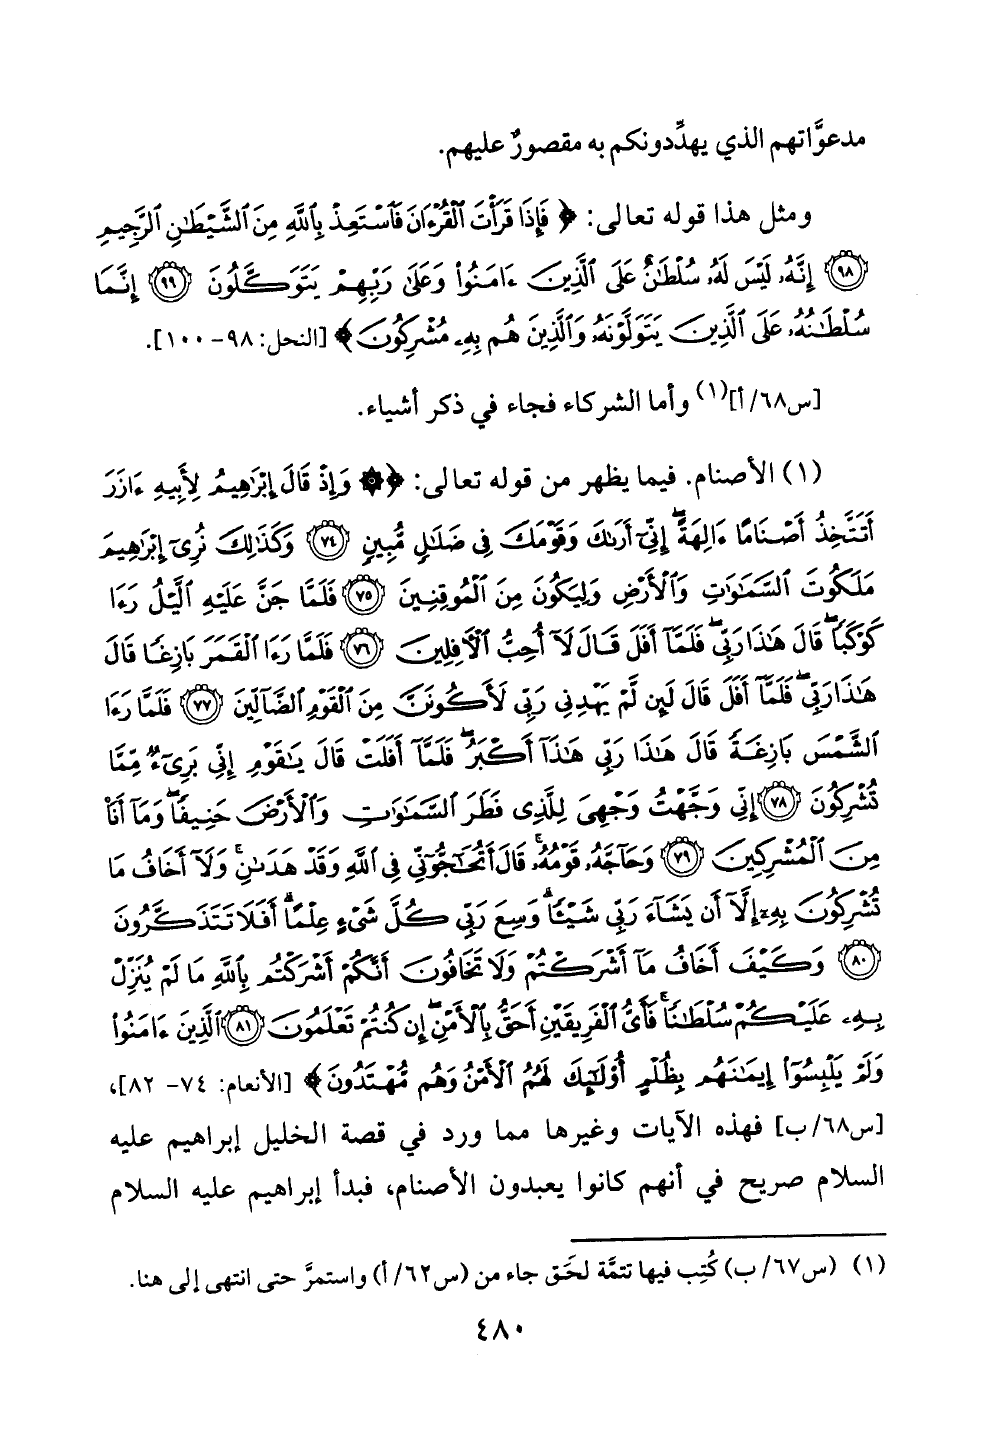 مدعوَّاتهم الذي يهدِّدونكم به مقصورٌ عليهم.
ومثل هذا قوله تعالى: ﴿ فَإِذَا قَرَأْتَ ٱلْقُرْءَانَ فَٱسْتَعِذْ بِٱللَّهِ مِنَ ٱلشَّيْطَٰنِ ٱلرَّجِيمِ
٩٨ إِنَّهُۥ لَيْسَ لَهُۥ سُلْطَٰنٌ عَلَى ٱلَّذِينَ ءَامَنُوا۟ وَعَلَىٰ رَبِّهِمْ يَتَوَكَّلُونَ ٩٩ إِنَّمَا
سُلْطَٰنُهُۥ عَلَى ٱلَّذِينَ يَتَوَلَّوْنَهُۥ وَٱلَّذِينَ هُم بِهِۦ مُشْرِكُونَ ﴾ [النحل: ٩٨- ١٠٠].
[س٦٨/ أ](١) وأما الشركاء فجاء في ذكر أشياء.
(١) الأصنام. فيما يظهر من قوله تعالى: ﴿ ۞ وَإِذْ قَالَ إِبْرَٰهِيمُ لِأَبِيهِ ءَازَرَ
أَتَتَّخِذُ أَصْنَامًا ءَالِهَةً ۖ إِنِّىٓ أَرَىٰكَ وَقَوْمَكَ فِى ضَلَٰلٍ مُّبِينٍ ٧٤ وَكَذَٰلِكَ نُرِىٓ إِبْرَٰهِيمَ
مَلَكُوتَ ٱلسَّمَٰوَٰتِ وَٱلْأَرْضِ وَلِيَكُونَ مِنَ ٱلْمُوقِنِينَ ٧٥ فَلَمَّا جَنَّ عَلَيْهِ ٱلَّيْلُ رَءَا
كَوْكَبًا ۖ قَالَ هَٰذَا رَبِّى ۖ فَلَمَّآ أَفَلَ قَالَ لَآ أُحِبُّ ٱلْءَافِلِينَ ٧٦ فَلَمَّا رَءَا ٱلْقَمَرَ بَازِغًا قَالَ
هَٰذَا رَبِّى ۖ فَلَمَّآ أَفَلَ قَالَ لَئِن لَّمْ يَهْدِنِى رَبِّى لَأَكُونَنَّ مِنَ ٱلْقَوْمِ ٱلضَّآلِّينَ ٧٧ فَلَمَّا رَءَا
ٱلشَّمْسَ بَازِغَةً قَالَ هَٰذَا رَبِّى هَٰذَآ أَكْبَرُ ۖ فَلَمَّآ أَفَلَتْ قَالَ يَٰقَوْمِ إِنِّى بَرِىٓءٌ مِّمَّا
تُشْرِكُونَ ٧٨ إِنِّى وَجَّهْتُ وَجْهِىَ لِلَّذِى فَطَرَ ٱلسَّمَٰوَٰتِ وَٱلْأَرْضَ حَنِيفًا ۖ وَمَآ أَنَا۠
مِنَ ٱلْمُشْرِكِينَ ٧٩ وَحَآجَّهُۥ قَوْمُهُۥ ۚ قَالَ أَتُحَٰٓجُّوٓنِّى فِى ٱللَّهِ وَقَدْ هَدَىٰنِ ۚ وَلَآ أَخَافُ مَا
تُشْرِكُونَ بِهِۦٓ إِلَّآ أَن يَشَآءَ رَبِّى شَيْـًٔا ۗ وَسِعَ رَبِّى كُلَّ شَىْءٍ عِلْمًا ۗ أَفَلَا تَتَذَكَّرُونَ
٨٠ وَكَيْفَ أَخَافُ مَآ أَشْرَكْتُمْ وَلَا تَخَافُونَ أَنَّكُمْ أَشْرَكْتُم بِٱللَّهِ مَا لَمْ يُنَزِّلْ
بِهِۦ عَلَيْكُمْ سُلْطَٰنًا ۚ فَأَىُّ ٱلْفَرِيقَيْنِ أَحَقُّ بِٱلْأَمْنِ ۖ إِن كُنتُمْ تَعْلَمُونَ ٨١ ٱلَّذِينَ ءَامَنُوا۟
وَلَمْ يَلْبِسُوٓا۟ إِيمَٰنَهُم بِظُلْمٍ أُو۟لَٰٓئِكَ لَهُمُ ٱلْأَمْنُ وَهُم مُّهْتَدُونَ ﴾ [الأنعام: ٧٤- ٨٢]،
[س٦٨/ ب] فهذه الآيات وغيرها مما ورد في قصة الخليل إبراهيم عليه
السلام صريح في أنهم كانوا يعبدون الأصنام، فبدأ إبراهيم عليه السلام
(١) (س٦٧/ ب) كُتِب فيها تتمَّة لحَق جاء من (س٦٢/ أ) واستمرَّ حتى انتهى إلى هنا.
٤٨٠